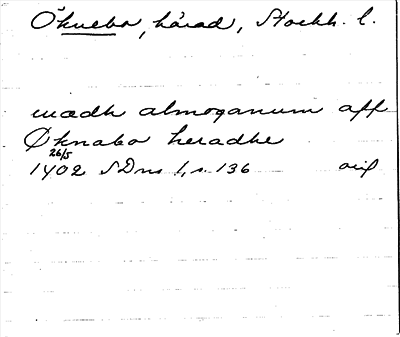 Öknebo, härad, Stockh. l.
mædh almoganum aff
Øknabo heradhe
26/5
1402 SDns 1, s. 136 orig